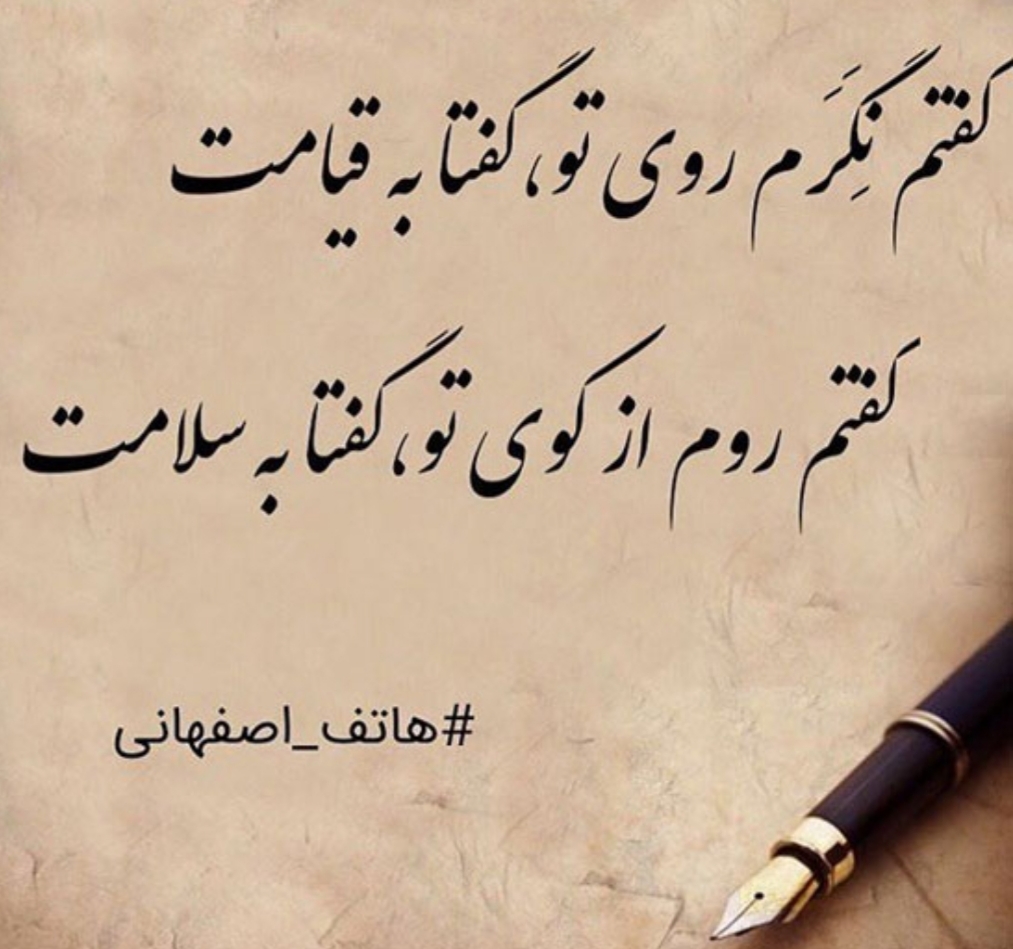 گفتم نِگَرَم روی تو، گفتا به قیامت
گفتم روم از کوی تو، گفتا به سلامت
#هاتف_اصفهانی